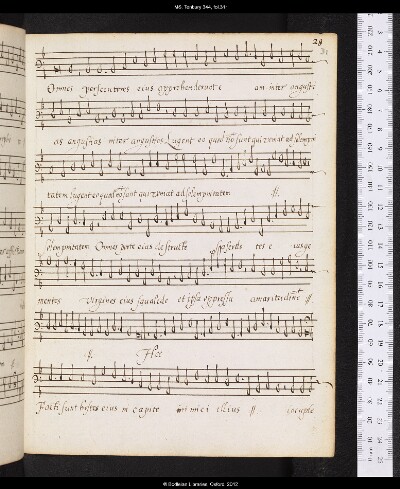 MS. Tenbury 344, fol.31r
28
Omnes persecutores eius apprehenderunt e am inter angusti
as angustias inter angustias Lugent eo quod non sunt qui veniat ad solempni
tatem lugent eo quod non sunt qui veniat ad solempnitatem //.
solempnitatem Omnes porte eius destructe
mentes virgines eius squalide et ipsa oppressa amaritudine //
//. Hee
Facti sunt hostes eius in capite inimici illius // locuple
© Bodleian Libraries, Oxford, 2012